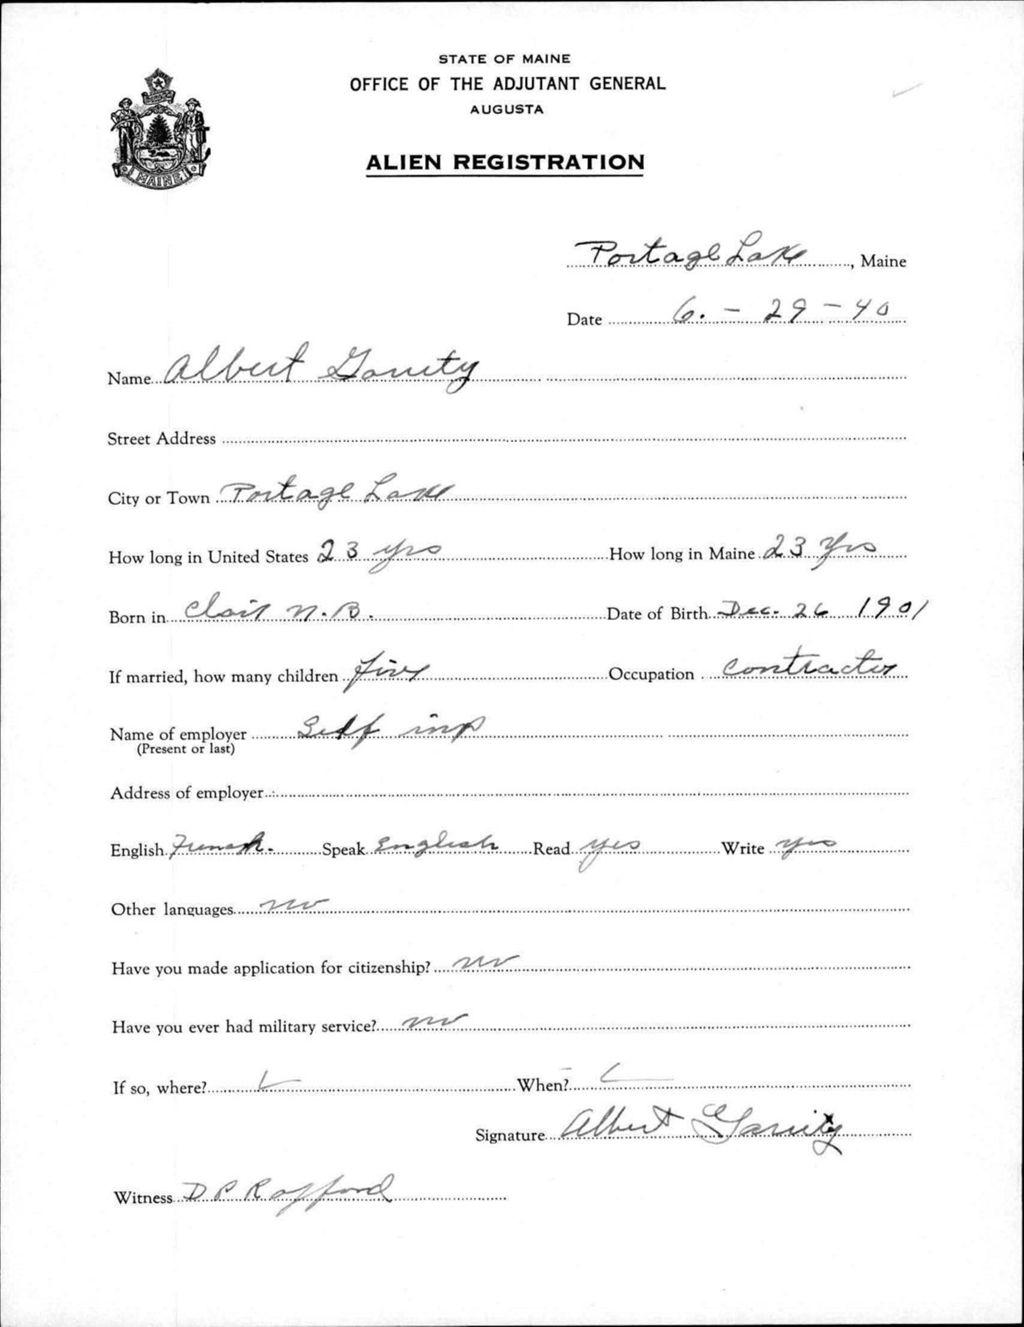 STATE OF MAINE
OFFICE OF THE ADJUTANT GENERAL
AUGUSTA
MAINE
ALIEN REGISTRATION
Portage Lake, Maine
Date 6. - 29 - 40
Name Albert Garrity
Street Address
City or Town Portage Lake
How long in United States 23 yrs How long in Maine 23 Yrs
Born in Clair N.B. Date of Birth Dec. 26 1901
If married, how many children five Occupation Contractor
Name of employer Self
(Present or last)
Address of employer
English French. Speak English Read yes Write yes
Other languages no
Have you made application for citizenship? no
Have you ever had military service? no
If so, where? When?
Signature Albert Garrity
Witness D P Rafford